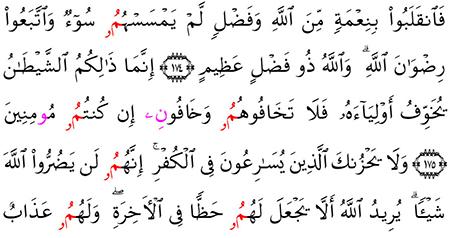 فَٱنقَلَبُوا۟ بِنِعْمَةٍ مِّنَ ٱللَّهِ وَفَضْلٍ لَّمْ يَمْسَسْهُمُۥ سُوٓءٌ وَٱتَّبَعُوا۟
رِضْوَٰنَ ٱللَّهِ ۗ وَٱللَّهُ ذُو فَضْلٍ عَظِيمٍ ﴿١٧٤﴾ إِنَّمَا ذَٰلِكُمُ ٱلشَّيْطَٰنُ
يُخَوِّفُ أَوْلِيَآءَهُۥ فَلَا تَخَافُوهُمُۥ وَخَافُونِۦ إِن كُنتُمُۥ مُومِنِينَ
﴿١٧٥﴾ وَلَا يَحْزُنكَ ٱلَّذِينَ يُسَٰرِعُونَ فِى ٱلْكُفْرِ ۚ إِنَّهُمُۥ لَن يَضُرُّوا۟ ٱللَّهَ
شَيْـًٔا ۗ يُرِيدُ ٱللَّهُ أَلَّا يَجْعَلَ لَهُمُۥ حَظًّا فِى ٱلْـَٔاخِرَةِ ۖ وَلَهُمُۥ عَذَابٌ